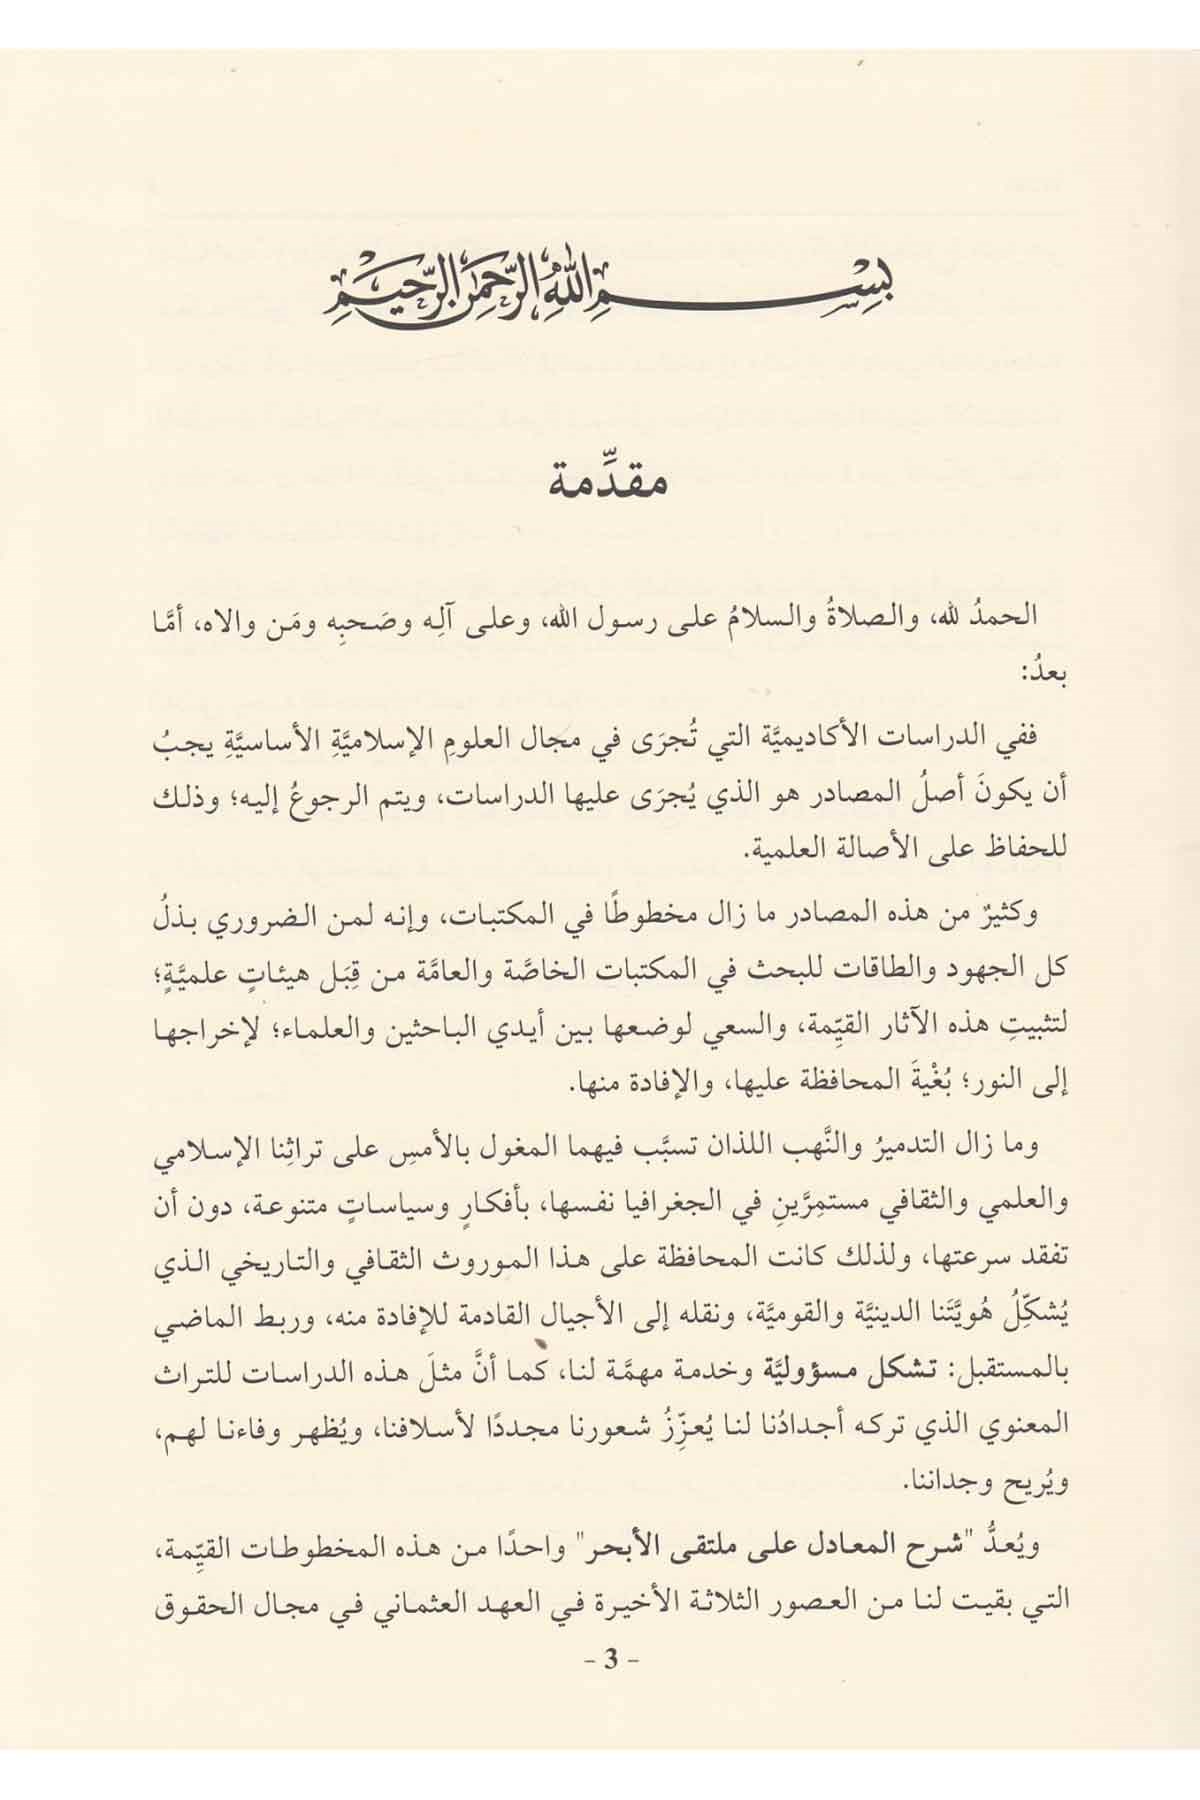 بِسْمِ اللهِ الرَّحْمٰنِ الرَّحِيمِ
مقدِّمة
الحمدُ لله، والصلاةُ والسلامُ على رسول الله، وعلى آلِه وصَحبِه ومَن والاه، أمَّا
بعدُ:
ففي الدراسات الأكاديميَّة التي تُجرَى في مجال العلومِ الإسلاميَّةِ الأساسيَّةِ يجبُ
أن يكونَ أصلُ المصادر هو الذي يُجرَى عليها الدراسات، ويتم الرجوعُ إليه؛ وذلك
للحفاظ على الأصالة العلمية.
وكثيرٌ من هذه المصادر ما زال مخطوطًا في المكتبات، وإنه لمن الضروري بذلُ
كل الجهود والطاقات للبحث في المكتبات الخاصَّة والعامَّة من قِبَل هيئاتٍ علميَّةٍ؛
لتثبيتِ هذه الآثار القيِّمة، والسعي لوضعها بين أيدي الباحثين والعلماء؛ لإخراجها
إلى النور؛ بُغْيةَ المحافظة عليها، والإفادة منها.
وما زال التدميرُ والنَّهب اللذان تسبَّب فيهما المغول بالأمسِ على تراثِنا الإسلامي
والعلمي والثقافي مستمِرَّينِ في الجغرافيا نفسها، بأفكارٍ وسياساتٍ متنوعة، دون أن
تفقد سرعتها، ولذلك كانت المحافظة على هذا الموروث الثقافي والتاريخي الذي
يُشكِّلُ هُويَّتَنا الدينيَّة والقوميَّة، ونقله إلى الأجيال القادمة للإفادة منه، وربط الماضي
بالمستقبل: تشكل مسؤوليَّة وخدمة مهمَّة لنا، كما أنَّ مثلَ هذه الدراسات للتراث
المعنوي الذي تركه أجدادُنا لنا يُعزِّزُ شعورنا مجددًا لأسلافنا، ويُظهر وفاءنا لهم،
ويُريح وجداننا.
ويُعدُّ "شرح المعادل على ملتقى الأبحر" واحدًا من هذه المخطوطات القيِّمة،
التي بقيت لنا من العصور الثلاثة الأخيرة في العهد العثماني في مجال الحقوق
- 3 -